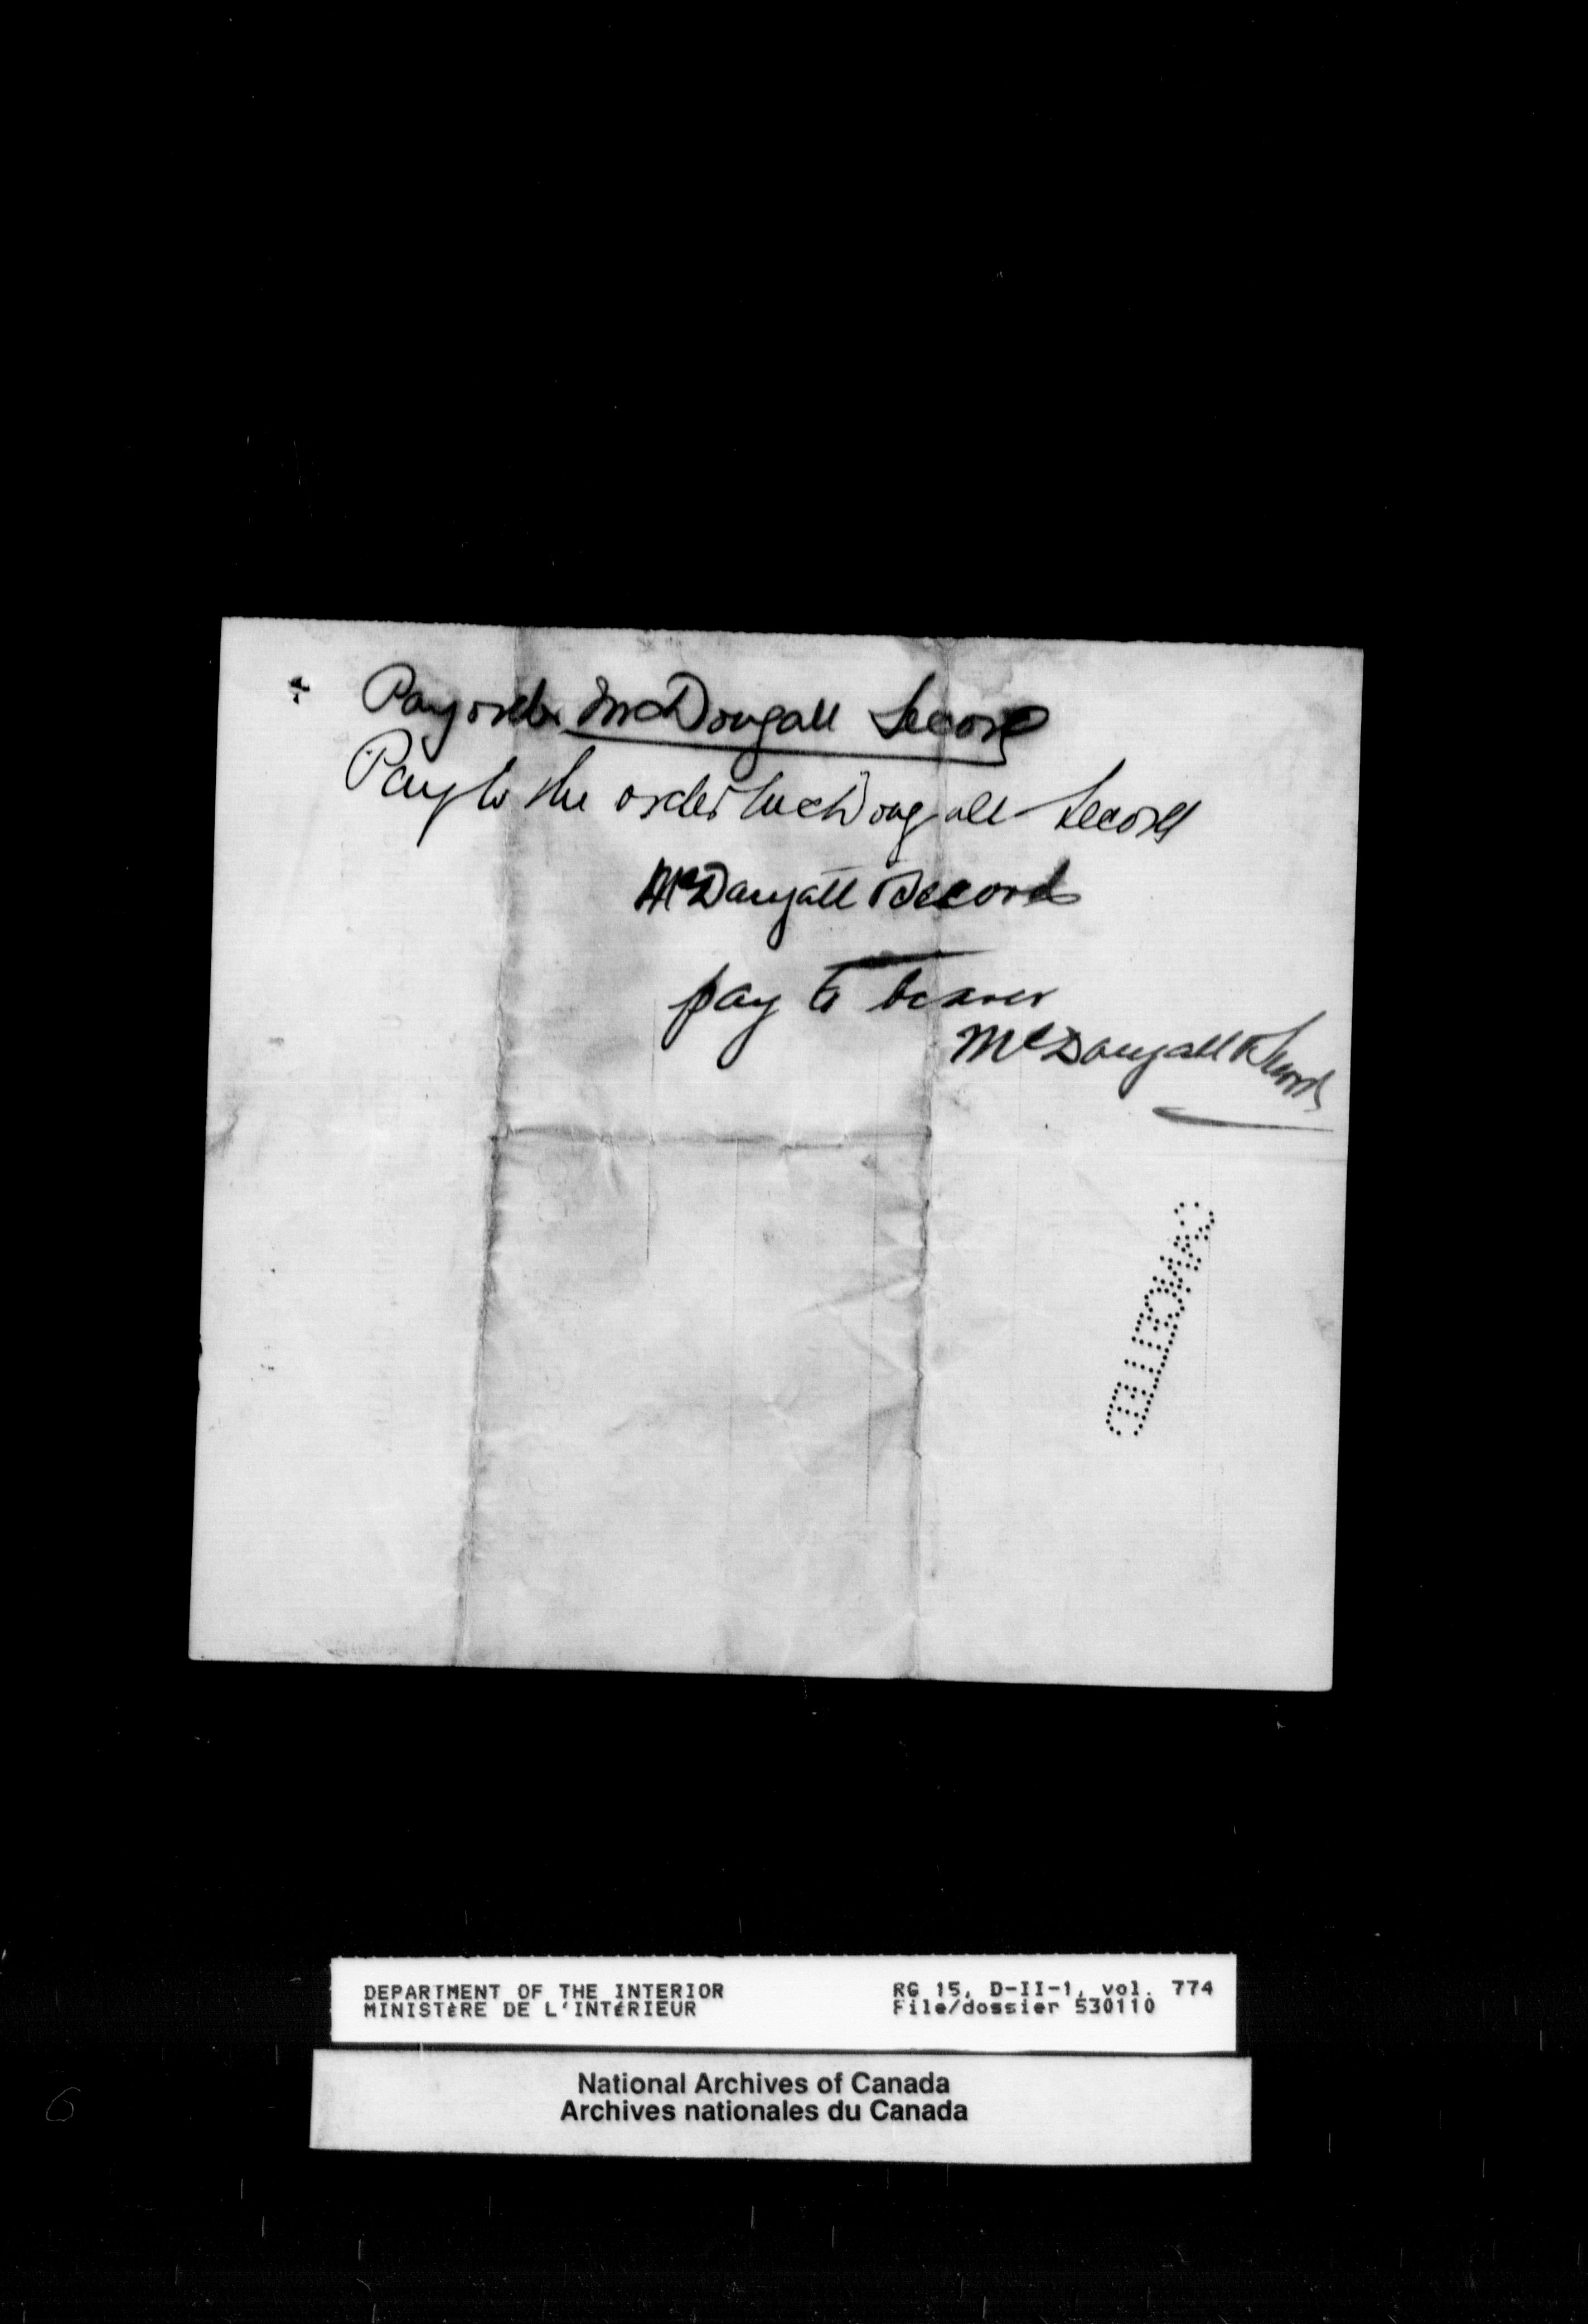 Pay order McDougall Secord
Pay to the order McDougall Secord
McDougall & Secord
pay to bearer
McDougall & Secord
CANCELLED
DEPARTMENT OF THE INTERIOR
MINISTÈRE DE L'INTÉRIEUR
RG 15, D-II-1, vol. 774
File/dossier 530110
National Archives of Canada
Archives nationales du Canada
6